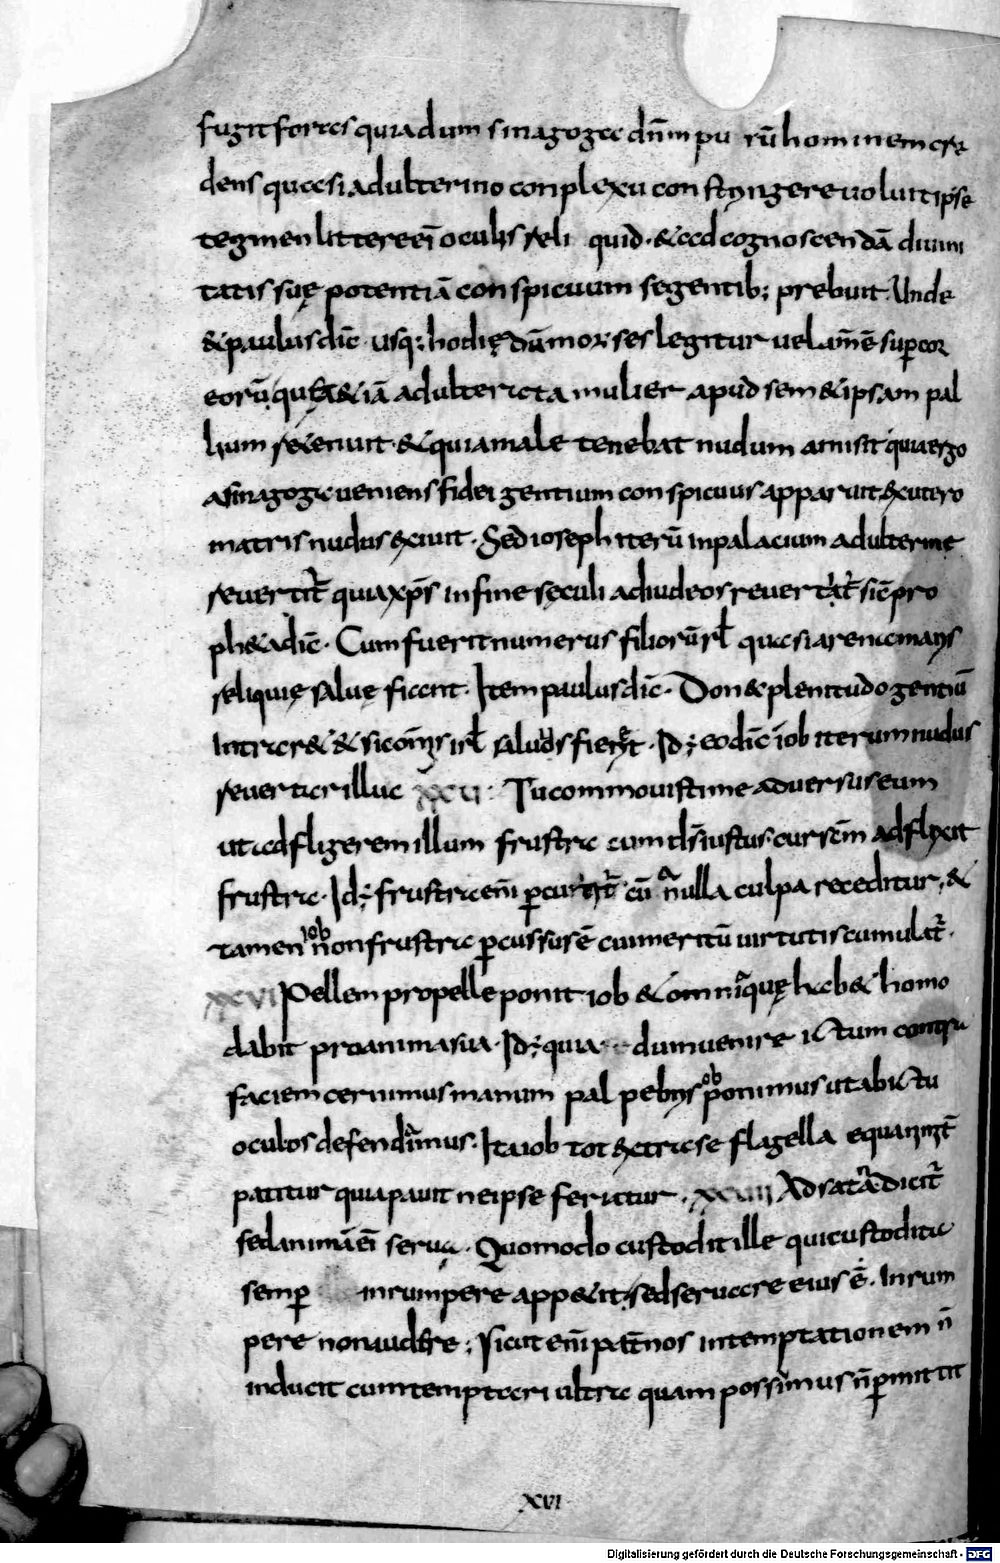 fugit foras quia dum sinagoga dn̄m pu rū hominem cre
dens quasi adulterino conplexu constringere uoluit ipse
tegmen littere ei oculis reli quid · & ad cognoscendā diuini
tatis suę potentiā conspicuum se gentib; prebuit · Unde
& paulus dic̄ · usq; hodię dū moyses legitur uelam̄ ē sup cor
eorū &iā adultera mulier apud sem&ipsam pal
lium retenuit · & quia male tenebat nudum amisit quia ergo
a sinagoga ueniens fidei gentium conspicuus apparuit ex utero
matris nudus exiuit · Sed ioseph iterū in palacium adulterine
reuertit̄ quia xp̄s in fine sęculi ad iudeos reuertat̄ sic̄ pro
ph&a dic̄ · Cum fuerit numerus filiorū isrl̄ quasi arena maris
reliquię saluę fiant · Item paulus dic̄ · Don& plenitudo gentiū
intrar& & sic om̄is isrl̄ saluus fieret · Id; eo dic̄ iob iterum nudus
reuertar illuc xxv · Tu commouisti me aduersus eum
ut adfligerem illum frustra cum ds̄ iustus cursem̄ adflixit
frustra · Id; frustra eni percutit̄ cū nulla culpa receditur, &
tamen iob non frustra percussus ē cui meritū uirtutis cumulat̄ ·
xxvi Pellem pro pelle ponit iob & omnia quę hab& homo
dabit pro anima sua · Id; quia dum uenire ictum contra
faciem cernimus manum palpebris oponimus ut ab ictu
oculos defendamus · Ita iob tot extra se flagella equanimit̄
patitur quia pauit ne ipse feriatur · xxvii Ad satā dicit̄
sed animā ei serua · Quomodo custodit ille qui custoditu
semp inrumpere app&it, sed seruare eius ē · Inrum
pere non audere ; Sicut eni pat̄ nos in temptationem n̄
inducit cum temptari ultra quam possimus n̄ permittit
xvi
Digitalisierung gefördert durch die Deutsche Forschungsgemeinschaft - DFG